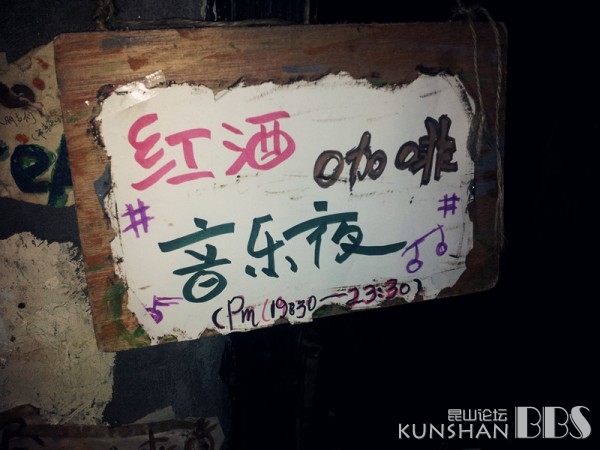 红酒 咖啡
# #
音乐夜
(Pm(19:30—23:30)
昆山论坛
KUNSHAN BBS